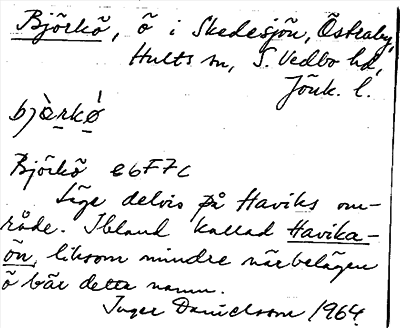 Björkö, ö i Skedesjön, Östraby,
Hults sn, S. Vedbo hd,
Jönk. l.
bjòrkǿ
Björkö e6F7c
Låge delvis på Haviks om-
råde. Ibland kallad Havika-
ön, liksom mindre närbelägen
ö bär detta namn.
Inger Danielsson 1964.